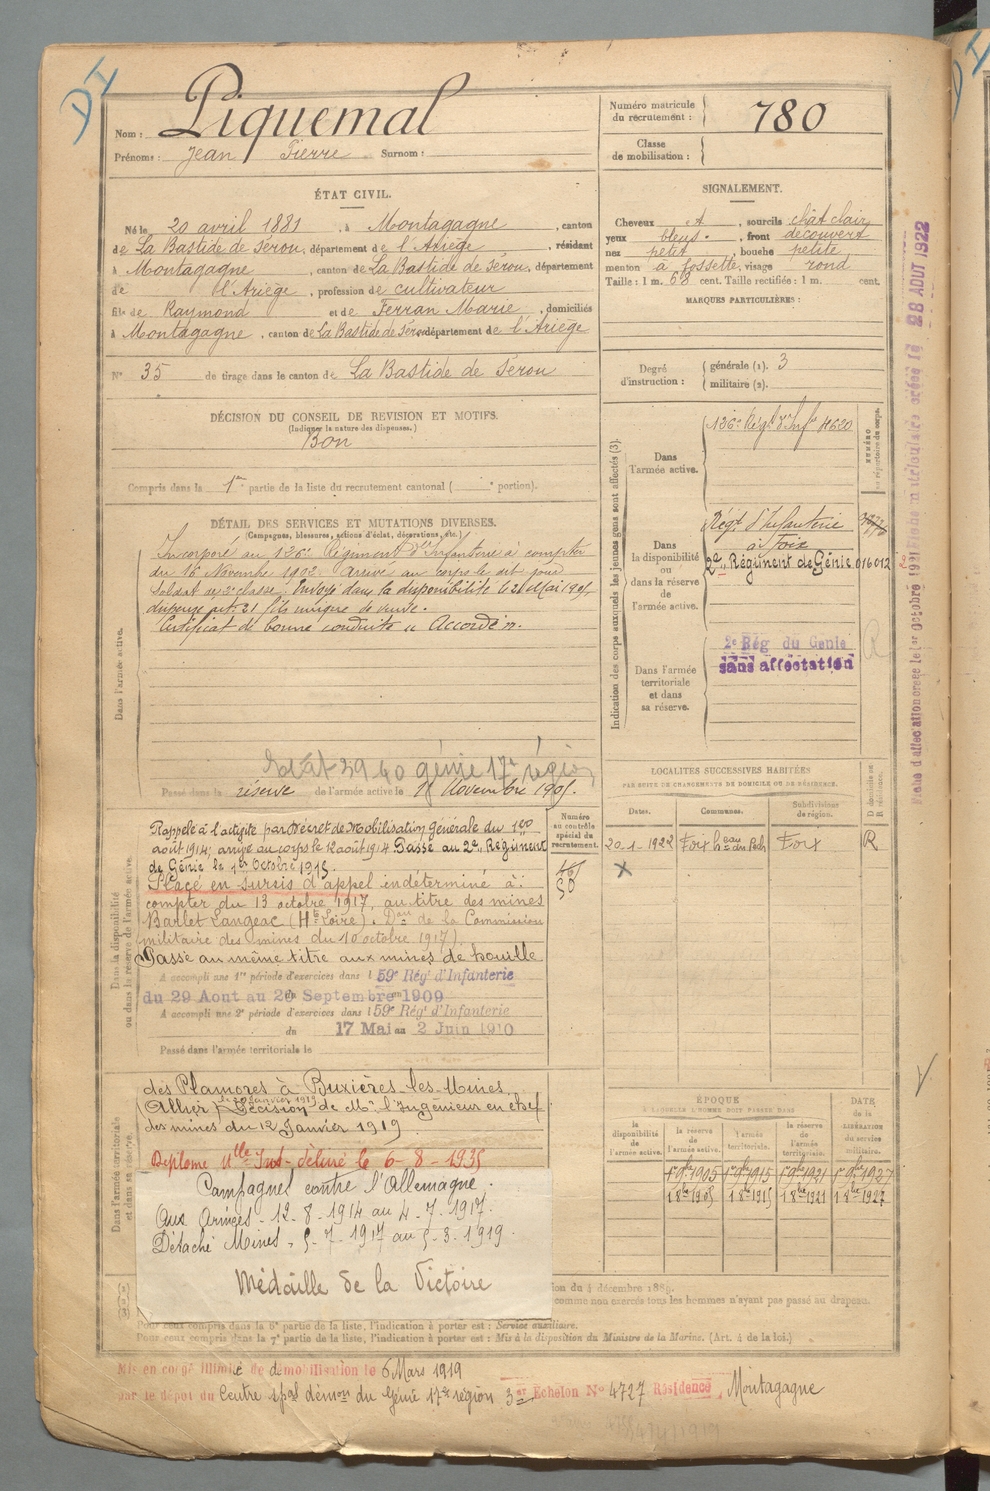 DI
Nom : Piquemal
Prénoms : Jean Pierre Surnom :
Numéro matricule du recrutement : 780
Classe de mobilisation :
ÉTAT CIVIL.
Né le 20 avril 1881, à Montagagne, canton
de La Bastide de Sérou, département de l'Ariège, résidant
à Montagagne, canton de La Bastide de Sérou, département
de l'Ariège, profession de cultivateur
fils de Raymond et de Ferran Marie, domiciliés
à Montagagne, canton de La Bastide de Sérou, département de l'Ariège
N° 35 de tirage dans le canton de La Bastide de Sérou
SIGNALEMENT.
Cheveux , sourcils chât clair
yeux bleus, front découvert
nez petit, bouche petite
menton à fossette, visage rond
Taille : 1 m. 63 cent. Taille rectifiée : 1 m. cent.
MARQUES PARTICULIÈRES :
Degré d'instruction : générale (1). 3
militaire (2).
DÉCISION DU CONSEIL DE REVISION ET MOTIFS.
(Indiquer la nature des dispenses.)
Bon
Compris dans la 1re partie de la liste du recrutement cantonal ( portion).
DÉTAIL DES SERVICES ET MUTATIONS DIVERSES.
(Campagnes, blessures, actions d'éclat, décorations, etc.)
Dans l'armée active.
Incorporé au 126e Régiment d'Infanterie à compter
du 16 Novembre 1902. Arrivé au corps le dit jour
Soldat de 2e classe. Envoyé dans la disponibilité le
dispensé art. 21 fils unique de veuve.
Certificat de bonne conduite "Accordé".
génie 17e région
Passé dans la réserve de l'armée active le Novembre 1905.
Indication des corps auxquels les jeunes gens sont affectés (3).
Dans l'armée active.
NUMÉRO au répertoire du corps.
Dans la disponibilité ou dans la réserve de l'armée active.
Régt d'Infanterie
à Foix
2e Régiment de Génie 016012
Dans l'armée territoriale et dans sa réserve.
2e Rég du Génie
sans affectation
Dans la disponibilité ou dans la réserve de l'armée active.
Rappelé à l'activité par Décret de Mobilisation Générale du 1er
août 1914, arrivé au corps le 12 août 1914. Passé au 2e Régiment
de Génie le 1er Octobre 1915.
Placé en sursis d'appel indéterminé à
compter du 13 octobre 1917, au titre des mines
Barlet Langeac (Hte Loire). Don de la Commission
militaire des mines du 10 octobre 1917).
Passé au même titre aux mines de houille
A accompli une 1re période d'exercices dans l 59e Régt d'Infanterie
du 29 Aout au Septembre 1909
A accompli une 2e période d'exercices dans l 59e Régt d'Infanterie
du 17 Mai au 2 Juin 1910
Passé dans l'armée territoriale le
Numéro au contrôle spécial du recrutement.
50
LOCALITÉS SUCCESSIVES HABITÉES
PAR SUITE DE CHANGEMENTS DE DOMICILE OU DE RÉSIDENCE.
Dates. Communes. Subdivisions de région. D domicile ou R résidence.
20-1-1922 Foix Foix R
Dans l'armée territoriale et dans sa réserve.
des Plamores à Buxières-les-Mines
Allier Décision de Mr l'Ingénieur en chef
des mines du 12 Janvier 1919
Diplome délivré le 6-8-1935
Campagnes contre l'Allemagne.
Aux Armées - 12-8-1914 au 4-7-1917.
Détaché Mines - 5-7-1917 au 5-3-1919.
Médaille de la Victoire
ÉPOQUE
À LAQUELLE L'HOMME DOIT PASSER DANS
la disponibilité de l'armée active.
la réserve de l'armée active.
l'armée territoriale.
la réserve de l'armée territoriale.
DATE de la LIBÉRATION du service militaire.
1 9bre 1905 1 9bre 1915 1 9bre 1921 1 9bre 1927
1 8bre 1905 1 8bre 1915 1 8bre 1921 1 8bre 1927
comme non exercés tous les hommes n'ayant pas passé au drapeau.
Pour ceux compris dans la 6e partie de la liste, l'indication à porter est : Service auxiliaire.
Pour ceux compris dans la 7e partie de la liste, l'indication à porter est : Mis à la disposition du Ministre de la Marine. (Art. 4 de la loi.)
Mis en congé illimité de démobilisation le 6 Mars 1919
par le dépôt du Centre spal démon du Génie 17e région 3e Échelon N° 4727 Résidence Montagagne
28 AOUT 1922